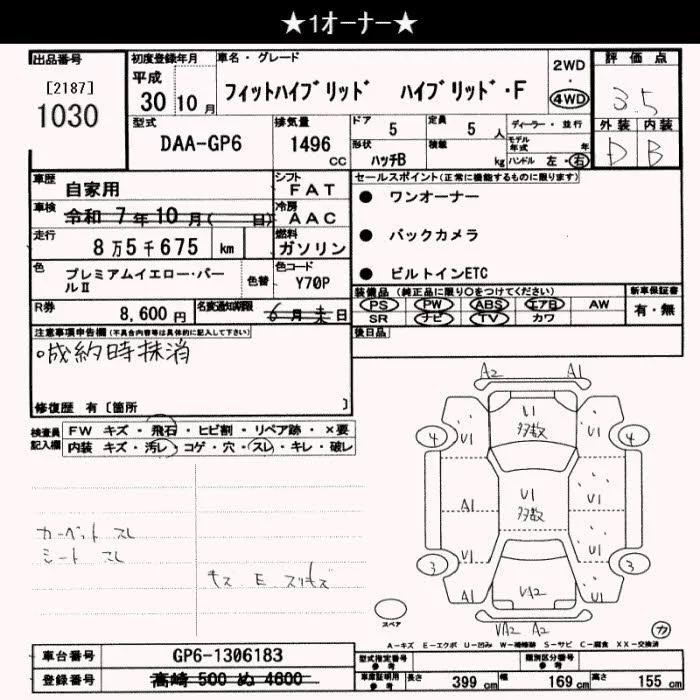 ★1オーナー★
出品番号
[2187]
1030
初度登録年月
平成
30 10月
車名・グレード
フィットハイブリッド ハイブリッド・F
2WD
・
4WD
評価点
3.5
型式
DAA-GP6
排気量
1496
CC
ドア
5
定員
5 人
ディーラー・並行
モデル年式 年
形状
ハッチB
積載
kg
ハンドル 左・右
外装 内装
D B
車歴
自家用
シフト
FAT
車検
令和 7年10月( 日)
冷房
AAC
走行
8万5千675 km
燃料
ガソリン
色
プレミアムイエロー・パールⅡ
色替
色コード
Y70P
R券
8,600円
名変通知期限
6月末日
セールスポイント(正常に機能するものに限ります)
● ワンオーナー
● バックカメラ
● ビルトインETC
装備品(純正品に限り○をつけてください)
PS PW ABS エアB AW
SR ナビ TV カワ
新車保証書
有・無
後日品
注意事項申告欄(不具合内容等は具体的に記入して下さい)
○成約時抹消
修復歴 有〔箇所 〕
検査員記入欄
FW キズ・飛石・ヒビ割・リペア跡・×要
内装 キズ・汚レ・コゲ・穴・スレ・キレ・破レ
カーペット スレ
シート スレ
キズ E スリキズ
A2 A1
U1
多数
U1 U1
4 4
A1 U1
U1
多数
U1 U1
3 3
A1 U1
VA2
VA2 A2
スペア
カ
A-キズ E-エクボ U-凹み W-補修跡 S-サビ C-腐食 XX-交換済
車台番号
GP6-1306183
登録番号
高崎 500 ぬ 4600
型式指定番号
参考
類別区分番号
参考
車庫証明用
参考
長さ 399 cm
幅 169 cm
高さ 155 cm